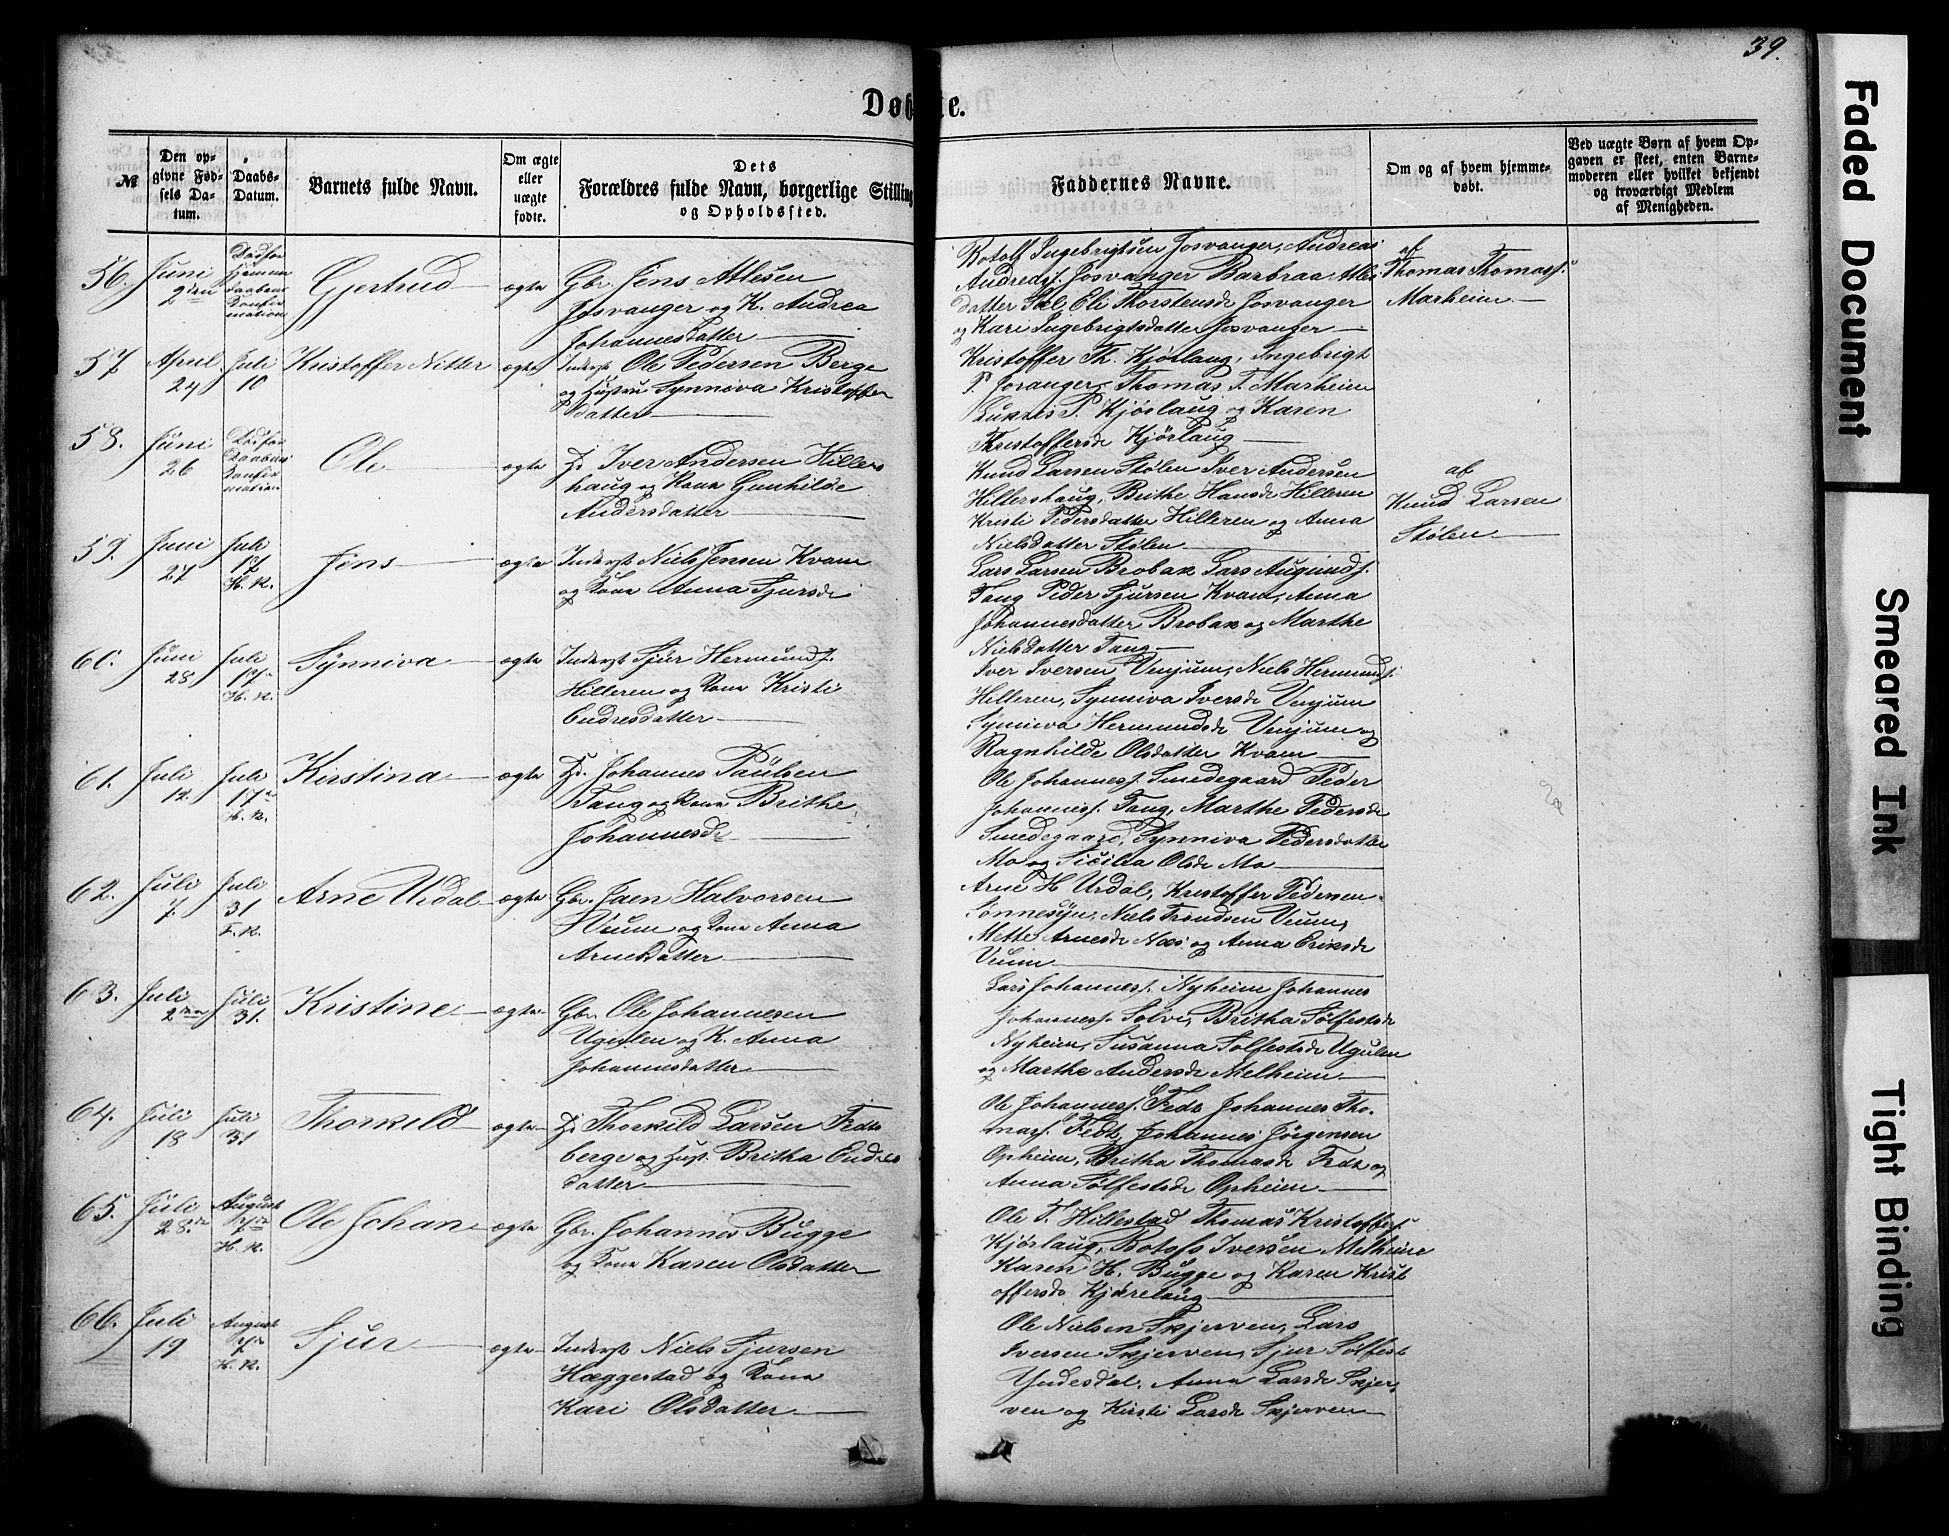 39.
Døbte.
№
Den opgivne Fødsels Datum.
Daabs-Datum.
Barnets fulde Navn.
Om ægte eller uægte fødte.
Dets Forældres fulde Navn, borgerlige Stilling og Opholdssted.
Faddernes Navne.
Om og af hvem hjemmedøbt.
Ved uægte Børn af hvem Opgaven er skeet, enten Barnemoderen eller hvilket bekjendt og troværdigt Medlem af Menigheden.
56. Juni 2den
Gjertrud
ægte
Gbr. Jens Atlesen
Josvanger og K. Andrea
Johannesdatter
Botolf Ingebrigtsen Josvanger, Andreas
Andreasf. Josvanger, Barbraa Atles
datter Ole Thorstensd. Josvanger
og Kari Ingebrigtsdatter Josvanger
af
Thomas Thomasf.
Marheim
57 April 24 Juli 10
Kristoffer Nitter
ægte
Inderst Ole Pedersen Berge
og Hustru Synneva Kristoffer
datter
Kristoffer Th. Kjørlaug, Ingebrigt
P. Joranger, Thomas T. Marheim
P. Kjørlaug og Karen
Kristoffersd. Kjørlaug
58. Juni 26
Ole
ægte
Iver Andersen Hillers
haug og Kone Gunhilde
Andersdatter
Knud Larsen Stølen Iver Andersen
Hillershaug, Brithe Hansd. Hilleren
Kristi Pedersdatter Hilleren og Anna
Nielsdatter Stølen
af
Knud Larsen
Stølen
59. Juni 27 Juli 17 H. K.
Jens
ægte
Inderst Niels Jensen Kvam
og Kone Anna Sjursd.
Lars Larsen Brobak Lars Augundf.
Tang Peder Sjursen Kvam, Anna
Johannesdatter Brobak og Marthe
Nielsdatter Tang
60. Juni 28. Juli 17 H. K.
Synniva
ægte
Inderst Sjur Hermundf.
Hilleren og Kone Kristi
Endresdatter
Iver Iversen Venjum, Niels Hermundf.
Hilleren, Synniva Iversd. Venjum
Synniva Hermundsd. Venjum og
Ragnhilde Olsdatter Kvam
61. Juli 12. Juli 17 H. K.
Kirstina
ægte
Johannes Paulsen
Tang og Kone Brithe
Johannesd.
Ole Johannesf. Smedegaard Peder
Johannesf. Tang, Marthe Pedersd.
Smedegaard, Synniva Pedersdatter
Mo og Sicilia Olsd. Mo
62. Juli 7. Juli 31 F. K.
Arne Urdal
ægte
Gbr. Jaen Halvorsen
Veum og Kone Anna
Arnesdatter
Arne H Urdal, Kristoffer Pedersen
Sønnesyn, Niels Trondsen Veum,
Mette Arnesd. Næs og Anna Eriksd.
Veum
63. Juli Juli 31.
Kristine
ægte
Gbr. Ole Johannesen
Ugulen og K. Anna
Johannesdatter
Lars Johannesf. Nyheim Johannes
Johannesf. Solvi, Britha Sølfestsd.
Nyheim, Susanna Solfestsd. Ugulen
og Marthe Andersd. Melheim
64. Juli 18 Juli 31
Thorkild
ægte
Thorkild Larsen Fedts
berge og Hust. Britha Endres
datter
Ole Johannesf. Fedt Johannes Tho-
masf. Fedt, Johannes Jørgensen
Opheim, Britha Thomasd. Fedt og
Anna Sølfestsd. Opheim
65. Juli 28. August 7 H. K.
Ole Johan
ægte
Gbr. Johannes Bugge
og Kone Karen Olsdatter
Ole T. Hillestad Thomas Kristoffersf.
Kjørlaug, Botolf Iversen Melheim
Karen H. Bugge og Karen Krist
offersd. Kjørelaug
66. Juli 19 August 7 H. K.
Sjur
ægte
Inderst Niels Sjursen
Hæggestad og Kone
Kari Olsdatter
Ole Nielsen Skjerven, Lars
Iversen Skjerven, Sjur Solfest
Yndesdal, Anna Larsd. Skjer-
ven og Kirsti Larsd. Skjerven
Faded Document
Smeared Ink
Tight Binding